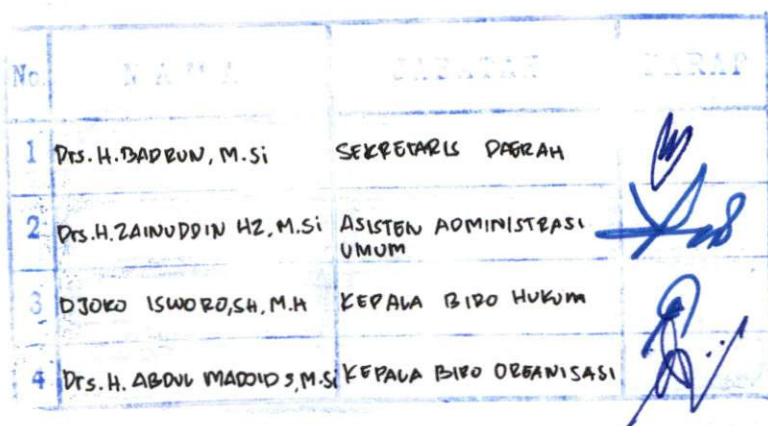 No. NAMA JABATAN PARAF
1 Drs. H. BADRUN, M.Si SEKRETARIS DAERAH
2 Drs. H. ZAINUDDIN HZ, M.Si ASISTEN ADMINISTRASI
UMUM
3 DJOKO ISWORO, SH, M.H KEPALA BIRO HUKUM
4 Drs. H. ABDUL M.Si KEPALA BIRO ORGANISASI